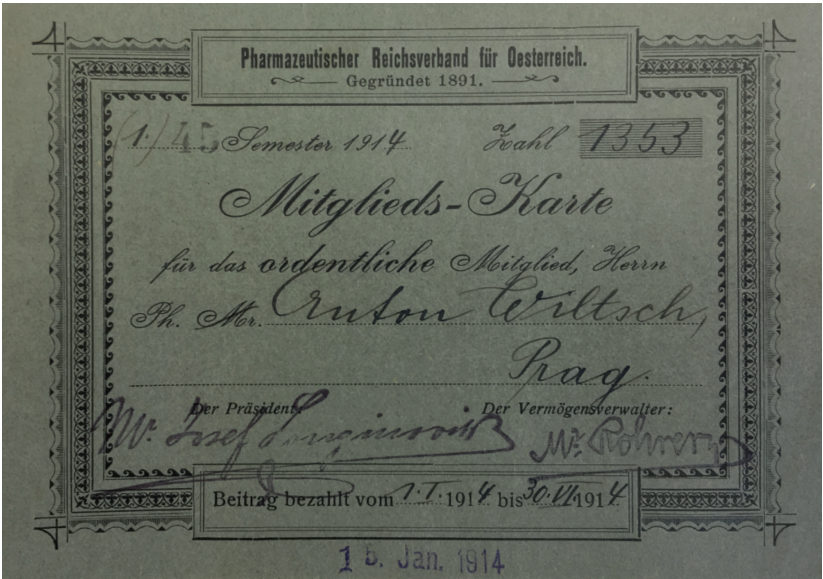 Pharmazeutischer Reichsverband für Oesterreich.
Gegründet 1891.
(1.) Semester 1914 Zahl 1353
Mitglieds-Karte
für das ordentliche Mitglied, Herrn
Ph. Mr. Anton Wiltsch,
Prag.
Der Präsident: Der Vermögensverwalter:
Mr. Josef Mr. Rohrer
Beitrag bezahlt vom 1.I.1914 bis 30.VI.1914
15. Jan. 1914